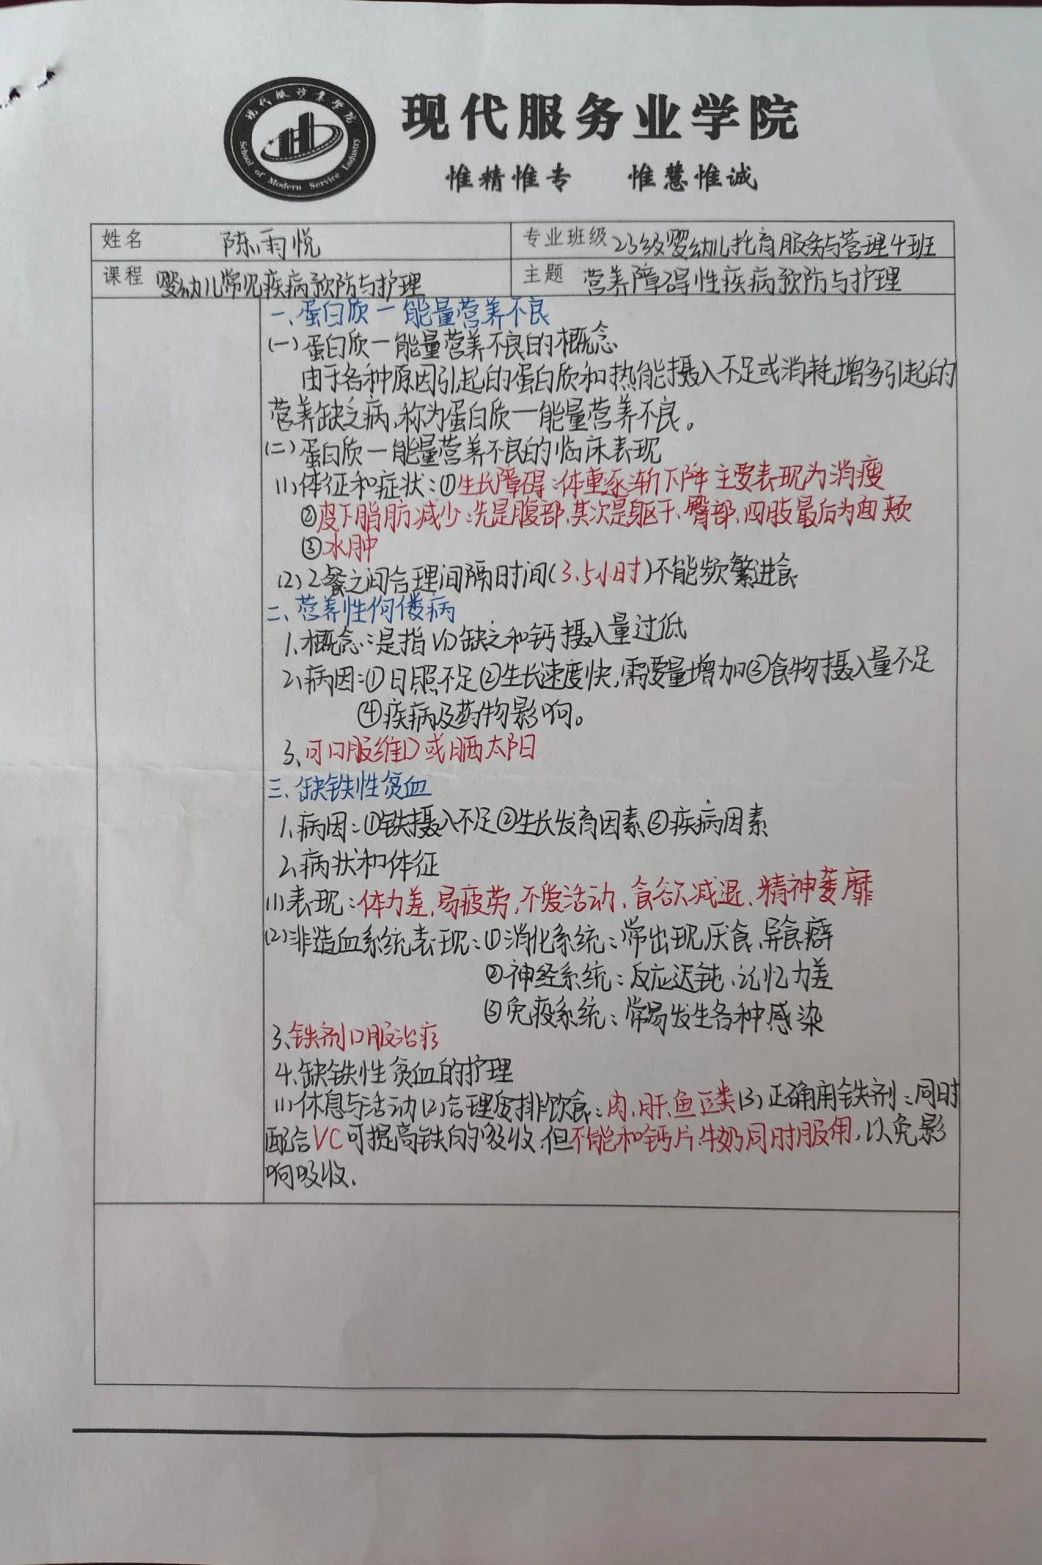 现代服务业学院
School of Modern Service Industry
现代服务业学院
惟精惟专 惟慧惟诚
姓名 陈雨悦 专业班级 22级婴幼儿托育服务与管理4班
课程 婴幼儿常见疾病预防与护理 主题 营养障碍性疾病预防与护理
一、蛋白质一能量营养不良
(一)蛋白质一能量营养不良的概念
由于各种原因引起的蛋白质和热能摄入不足或消耗增多引起的
营养缺乏病,称为蛋白质一能量营养不良。
(二)蛋白质一能量营养不良的临床表现
(1)体征和症状:①生长障碍:体重逐渐下降 主要表现为消瘦
②皮下脂肪减少:先是腹部,其次是躯干、臀部、四肢最后为面颊
③水肿
(2)2餐之间合理间隔时间(3.5小时)不能频繁进食
二、营养性佝偻病
1.概念:是指VD缺乏和钙摄入量过低
2.病因:①日照不足②生长速度快,需要量增加③食物摄入量不足
④疾病及药物影响。
3.可口服维D或晒太阳
三、缺铁性贫血
1.病因:①铁摄入不足②生长发育因素③疾病因素
2.病状和体征
(1)表现:体力差,易疲劳,不爱活动,食欲减退、精神萎靡
(2)非造血系统表现:①消化系统:常出现厌食、异食癖
②神经系统:反应迟钝、记忆力差
③免疫系统:常易发生各种感染
3.铁剂口服治疗
4.缺铁性贫血的护理
(1)休息与活动(2)合理安排饮食:肉、肝、鱼豆类(3)正确用铁剂:同时
配合VC可提高铁的吸收,但不能和钙片牛奶同时服用,以免影
响吸收.